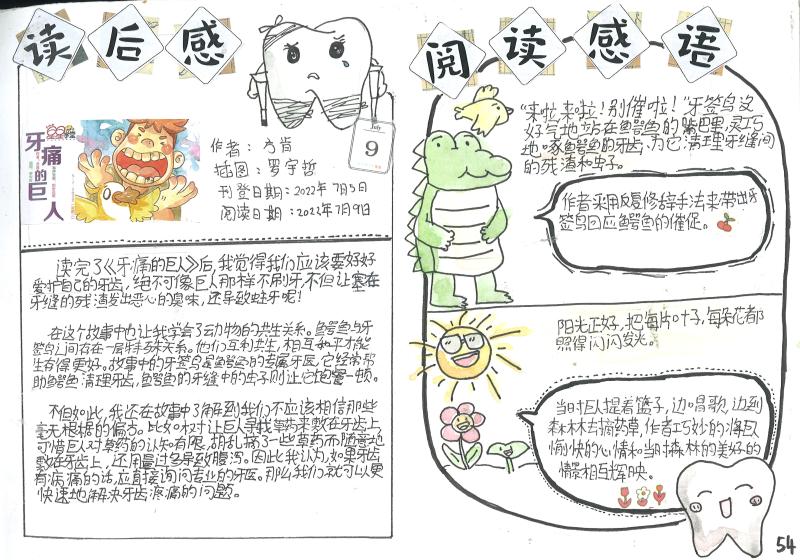 读后感
牙痛的巨人
作者：方肯
插图：罗宇哲
刊登日期：2022年7月5日
阅读日期：2022年7月9日
July
9
读完了《牙痛的巨人》后，我觉得我们应该要好好
爱护自己的牙齿，绝不可像巨人那样不刷牙，不但让塞在
牙缝的残渣发出恶心的臭味，还导致蛀牙呢！
在这个故事中也让我学会了动物的共生关系。鳄鱼与牙
签鸟之间存在一层特殊关系。他们互利共生，相互和平才能
生存得更好。故事中的牙签鸟是鳄鱼的专属牙医，它经常帮
助鳄鱼清理牙齿，鳄鱼的牙缝中的虫子则让它饱餐一顿。
不但如此，我还在故事中了解到我们不应该相信那些
毫无根据的偏方。比如村对让巨人寻找草药来敷在牙齿上，
可惜巨人对草药的认知有限，胡乱摘了一些草药而随意地
敷在牙齿上，还用量过多导致腹泻。因此我认为，如果牙齿
有病痛的话，应直接询问专业的牙医。那么我们就可以更
快速地解决牙齿疼痛的问题。
阅读感语
“来啦，来啦！别催啦！”牙签鸟没
好气地站在鳄鱼的嘴巴里，灵巧
地啄鳄鱼的牙齿，为它清理牙缝间
的残渣和虫子。
作者采用反复修辞手法来带出牙
签鸟回应鳄鱼的催促。
阳光正好，把每片叶子，每朵花都
照得闪闪发光。
当时巨人提着篮子，边唱歌，边到
森林去摘药草，作者巧妙的将巨人
愉快的心情和当时森林的美好的
情景相互辉映。
54